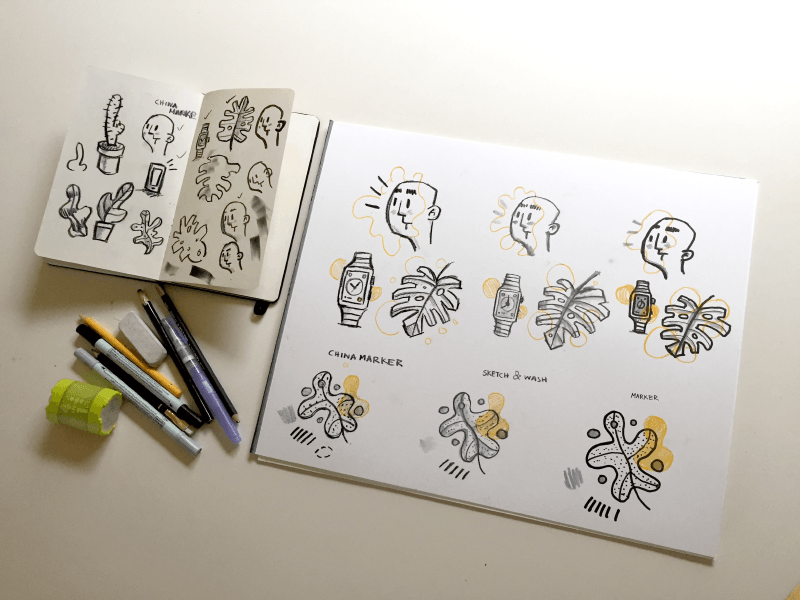 CHINA
MARKER
CHINA MARKER
SKETCH & WASH
MARKER